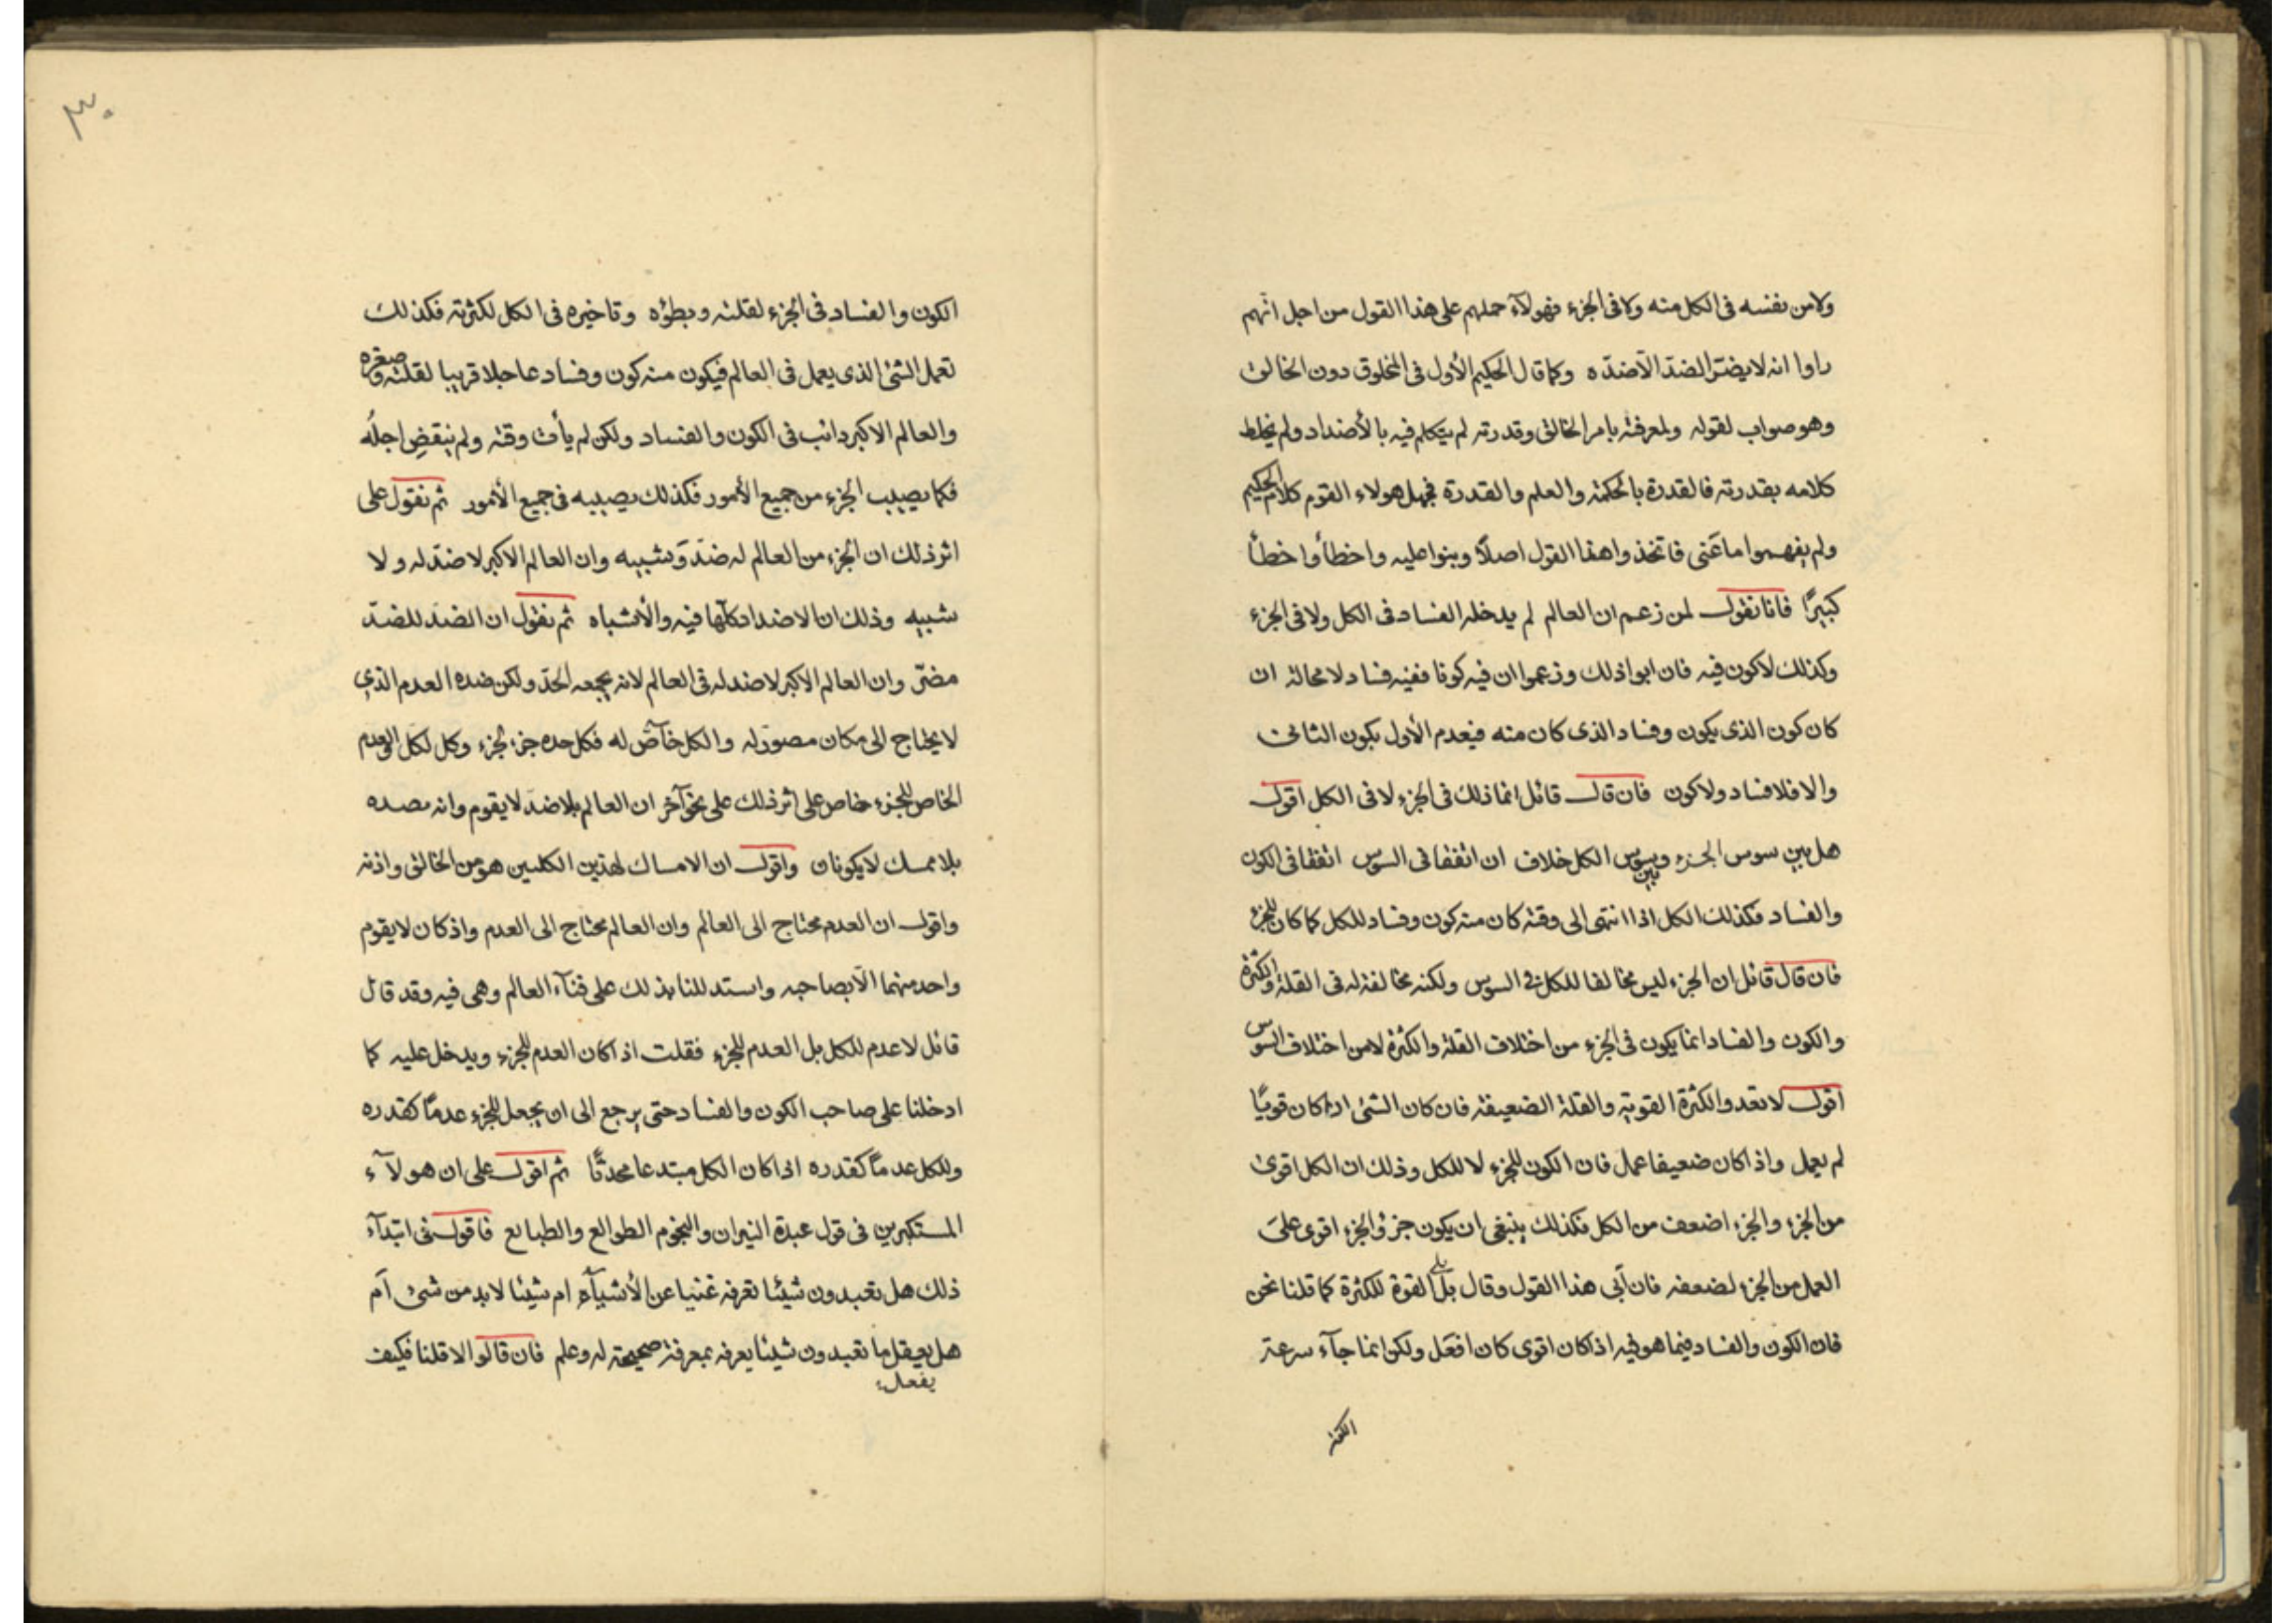 ولا من نفسه فى الكل منه ولا فى الجزء فهولآء حملهم على هذا القول من اجل انهم
راوا انه لا يضتر الضدّ الّا ضدّه وكما قال الحكيم الأول فى المخلوق دون الخالق
وهو صواب لقوله ولمعرفته بامر الخالق وقدرته لم يتكلم فيه بالأضداد ولم يخلط
كلامه بقدرته فالقدرة بالحكمة والعلم والقدرة فجهل هولاء القوم كلام الحكيم
ولم يفهموا ما عَنى فاتخذوا هذا القول اصلًا وبنوا عليه واخطأوا خطأ
كبيرًا فانا نقول لمن زعم ان العالم لم يدخله الفساد فى الكل ولا فى الجزء
وكذلك لا كون فيه فان ابوا ذلك وزعموا ان فيه كونا ففيه فساد لا محالة ان
كان كون الذى يكون وفساد الذى كان منه فيعدم الأول بكون الثانى
والا فلا فساد ولا كون فان قال قائل انما ذلك فى الجزء لا فى الكل اقول
هل بين سوس الجزء وبين سوس الكل خلاف ان اتفقا فى السوس اتفقا فى الكون
والفساد فكذلك الكل اذا انتهى الى وقته كان منه كون وفساد للكل كما كان للجزء
فان قال قائل ان الجزء ليس مخالفا للكل فى السوس ولكنه مخالفة له فى القلة والكثرة
والكون والفساد انما يكون فى الجزء من اختلاف القلة والكثرة لا من اختلاف السوس
اقول لا تعدوا الكثرة القوية والقلة الضعيفة فان كان الشئ اذا كان قويًا
لم يعمل واذا كان ضعيفا عمل فان الكون للجزء لا للكل وذلك ان الكل اقوى
من الجزء والجزء اضعف من الكل فكذلك ينبغى ان يكون جزؤ الجزء اقوى على
العمل من الجزء لضعفه فان أبى هذا القول وقال بل القوة للكثرة كما قلنا نحن
فان الكون والفساد فيما هو فيه اذ كان اقوى كان افعل ولكن انما جآء سرعة
الكون
٣٠
الكون والفساد فى الجزء لقلته وبطؤه وتاخيره فى الكل لكثرته فكذلك
تعمل الشئ الذى يعمل فى العالم فيكون منه كون وفساد عاجلا قريبا لقلته وصغره
والعالم الاكبر دائب فى الكون والفساد ولكن لم يأت وقته ولم ينقضِ اجلُه
فكما يصيب الجزء من جميع الأمور فكذلك يصيبه فى جميع الأمور ثم نقول على
اثر ذلك ان الجزء من العالم له ضدّ وشبيه وان العالم الاكبر لا ضدّ له ولا
شبيه وذلك ان الاضداد كلّها فيه والأشباه ثم نقول ان الضدّ للضدّ
مضرّ وان العالم الاكبر لا ضد له فى العالم لانه يجمعه الحدّ ولكن ضده العدم الذى
لا يحتاج الى مكان مصوّر له والكل خآصّ له فكل حده جزء لجزء وكل لكل العدم
الخاص للجزء خاص على اثر ذلك على نحو آخر ان العالم بلا ضدّ لا يقوم وانه بصده
بلا ممسك لا يكونان واقول ان الامساك لهذين الكلين هو من الخالق واذنه
واقول ان العدم محتاج الى العالم وان العالم محتاج الى العدم واذ كان لا يقوم
واحد منهما الّا بصاحبه واستدللنا بذلك على فنآء العالم وهى فيه وقد قال
قائل لا عدم للكل بل العدم للجزء فقلت اذ كان العدم للجزء ويدخل عليه كما
ادخلنا على صاحب الكون والفساد حتى يرجع الى ان يجعل للجزء عدمًا كقدره
وللكل عدمًا كقدره اذا كان الكل مبتدعا محدثًا ثم اقول على ان هولآء
المستكبرين فى قول عبدة النيران والنجوم الطوالع والطبايع فاقول فى ابتدآء
ذلك هل تعبدون شيئا نعرفه غنيا عن الأشيآء ام شيئا لا بد من شئ أم
هل يعقل ما تعبدون شيئا يعرفه بمعرفة صحيحة له وعلم فان قالوا لا قلنا فكيف
يفعل